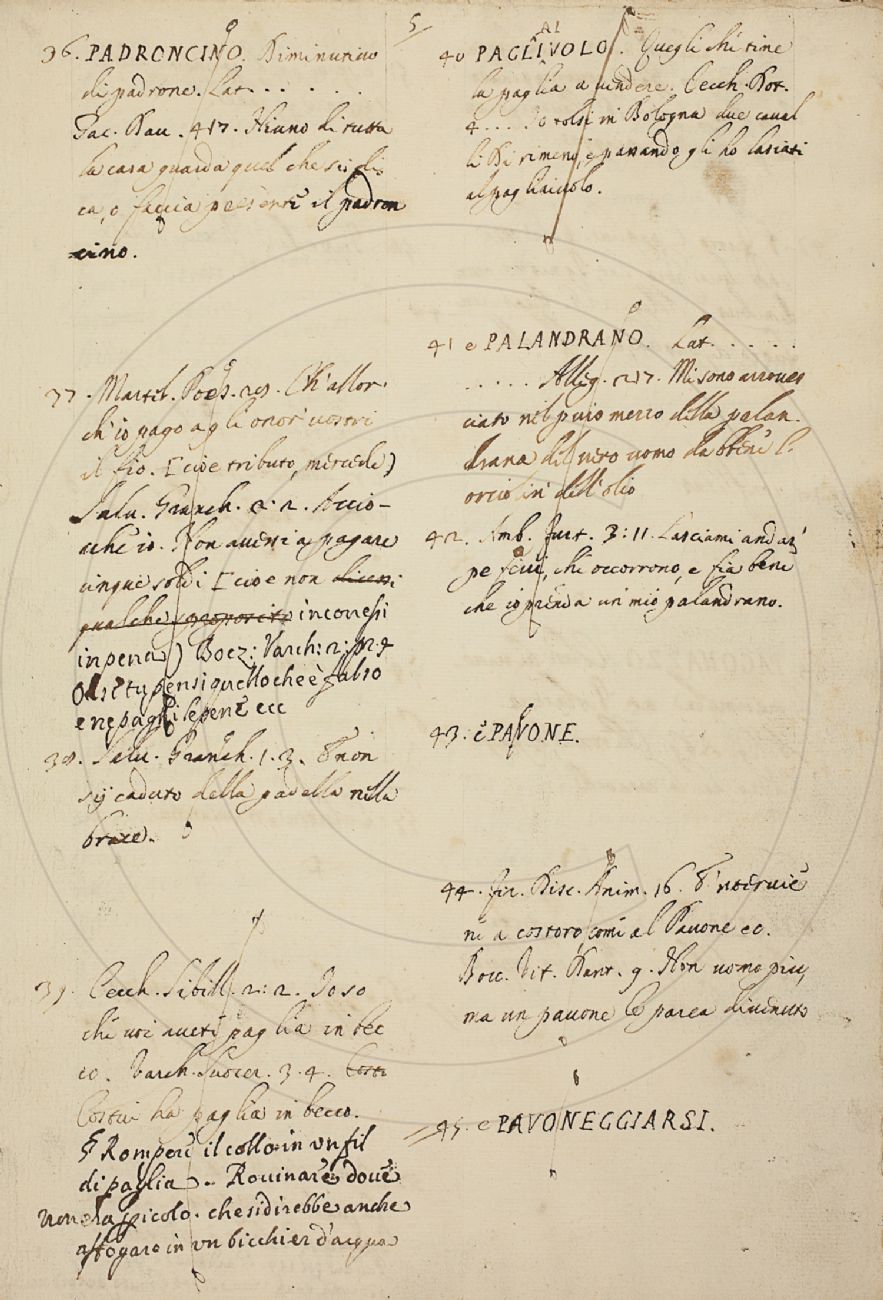 5
36. PADRONCINO. Diminutivo
di padrone. Lat. . . . . .
Dau. 417. Niuno di tutta
la casa guarda quel che si di
ca, o faccia presente il padron
cino.
37. Martel. Poes. 29. Ch'allor
ch'io pago agli onor' vostri
il fio. [cioè tributo, mercede)
Salu. Granch. 2. 2. Accio-
chè io. Non avessi a pagare
cinque soldi [cioè non
qualche proposito incorressi
in pena) Boez: Varch: 2: p: 4
O se tu pensi quello che è falso
e ne paghi le pene ecc
38. Salu. Granch. 1. 3. E non
sij caduto della padella nella
brace.
39. Cecch. Sibill. 2: 2. Io so
che voi avete paglia in bec
co. Varch. Suocer. 3. 4.
Costui ha paglia in becco.
§ Rompere il collo in un fil
di paglia .. Rovinare dove
non è la pericolo. che si direbbe anche
affogare in un bicchier d'acqua
AI
40 PAGLIVOLO. Quegli che tiene
la paglia a vendere. Cecch. Dot.
4. . . . Io tolsi in Bologna due caval
li di rimeno, e passando gli ho lasciati
al pagliaiuolo.
41 e PALANDRANO. Lat. . . . . .
. . . . . Alleg. 217. Mi sono arroves
ciato nel puro mezzo della palan.
drana del vero uomo da bene l'
orciolin dell'olio
42. Amb. Furt. 3: 11. Lasciami andar'
pe scudi, che occorrono, e fia bene
che io prenda un mio palandrano.
43. è PAVONE.
44. Fir. Disc. Anim. 16. E' n'interviè
ne a costoro, come al Pavone ec.
Bocc. Vit. Dant. 9. Non uomo più,
ma un pavone le parea divenuto
45. e PAVONEGGIARSI.